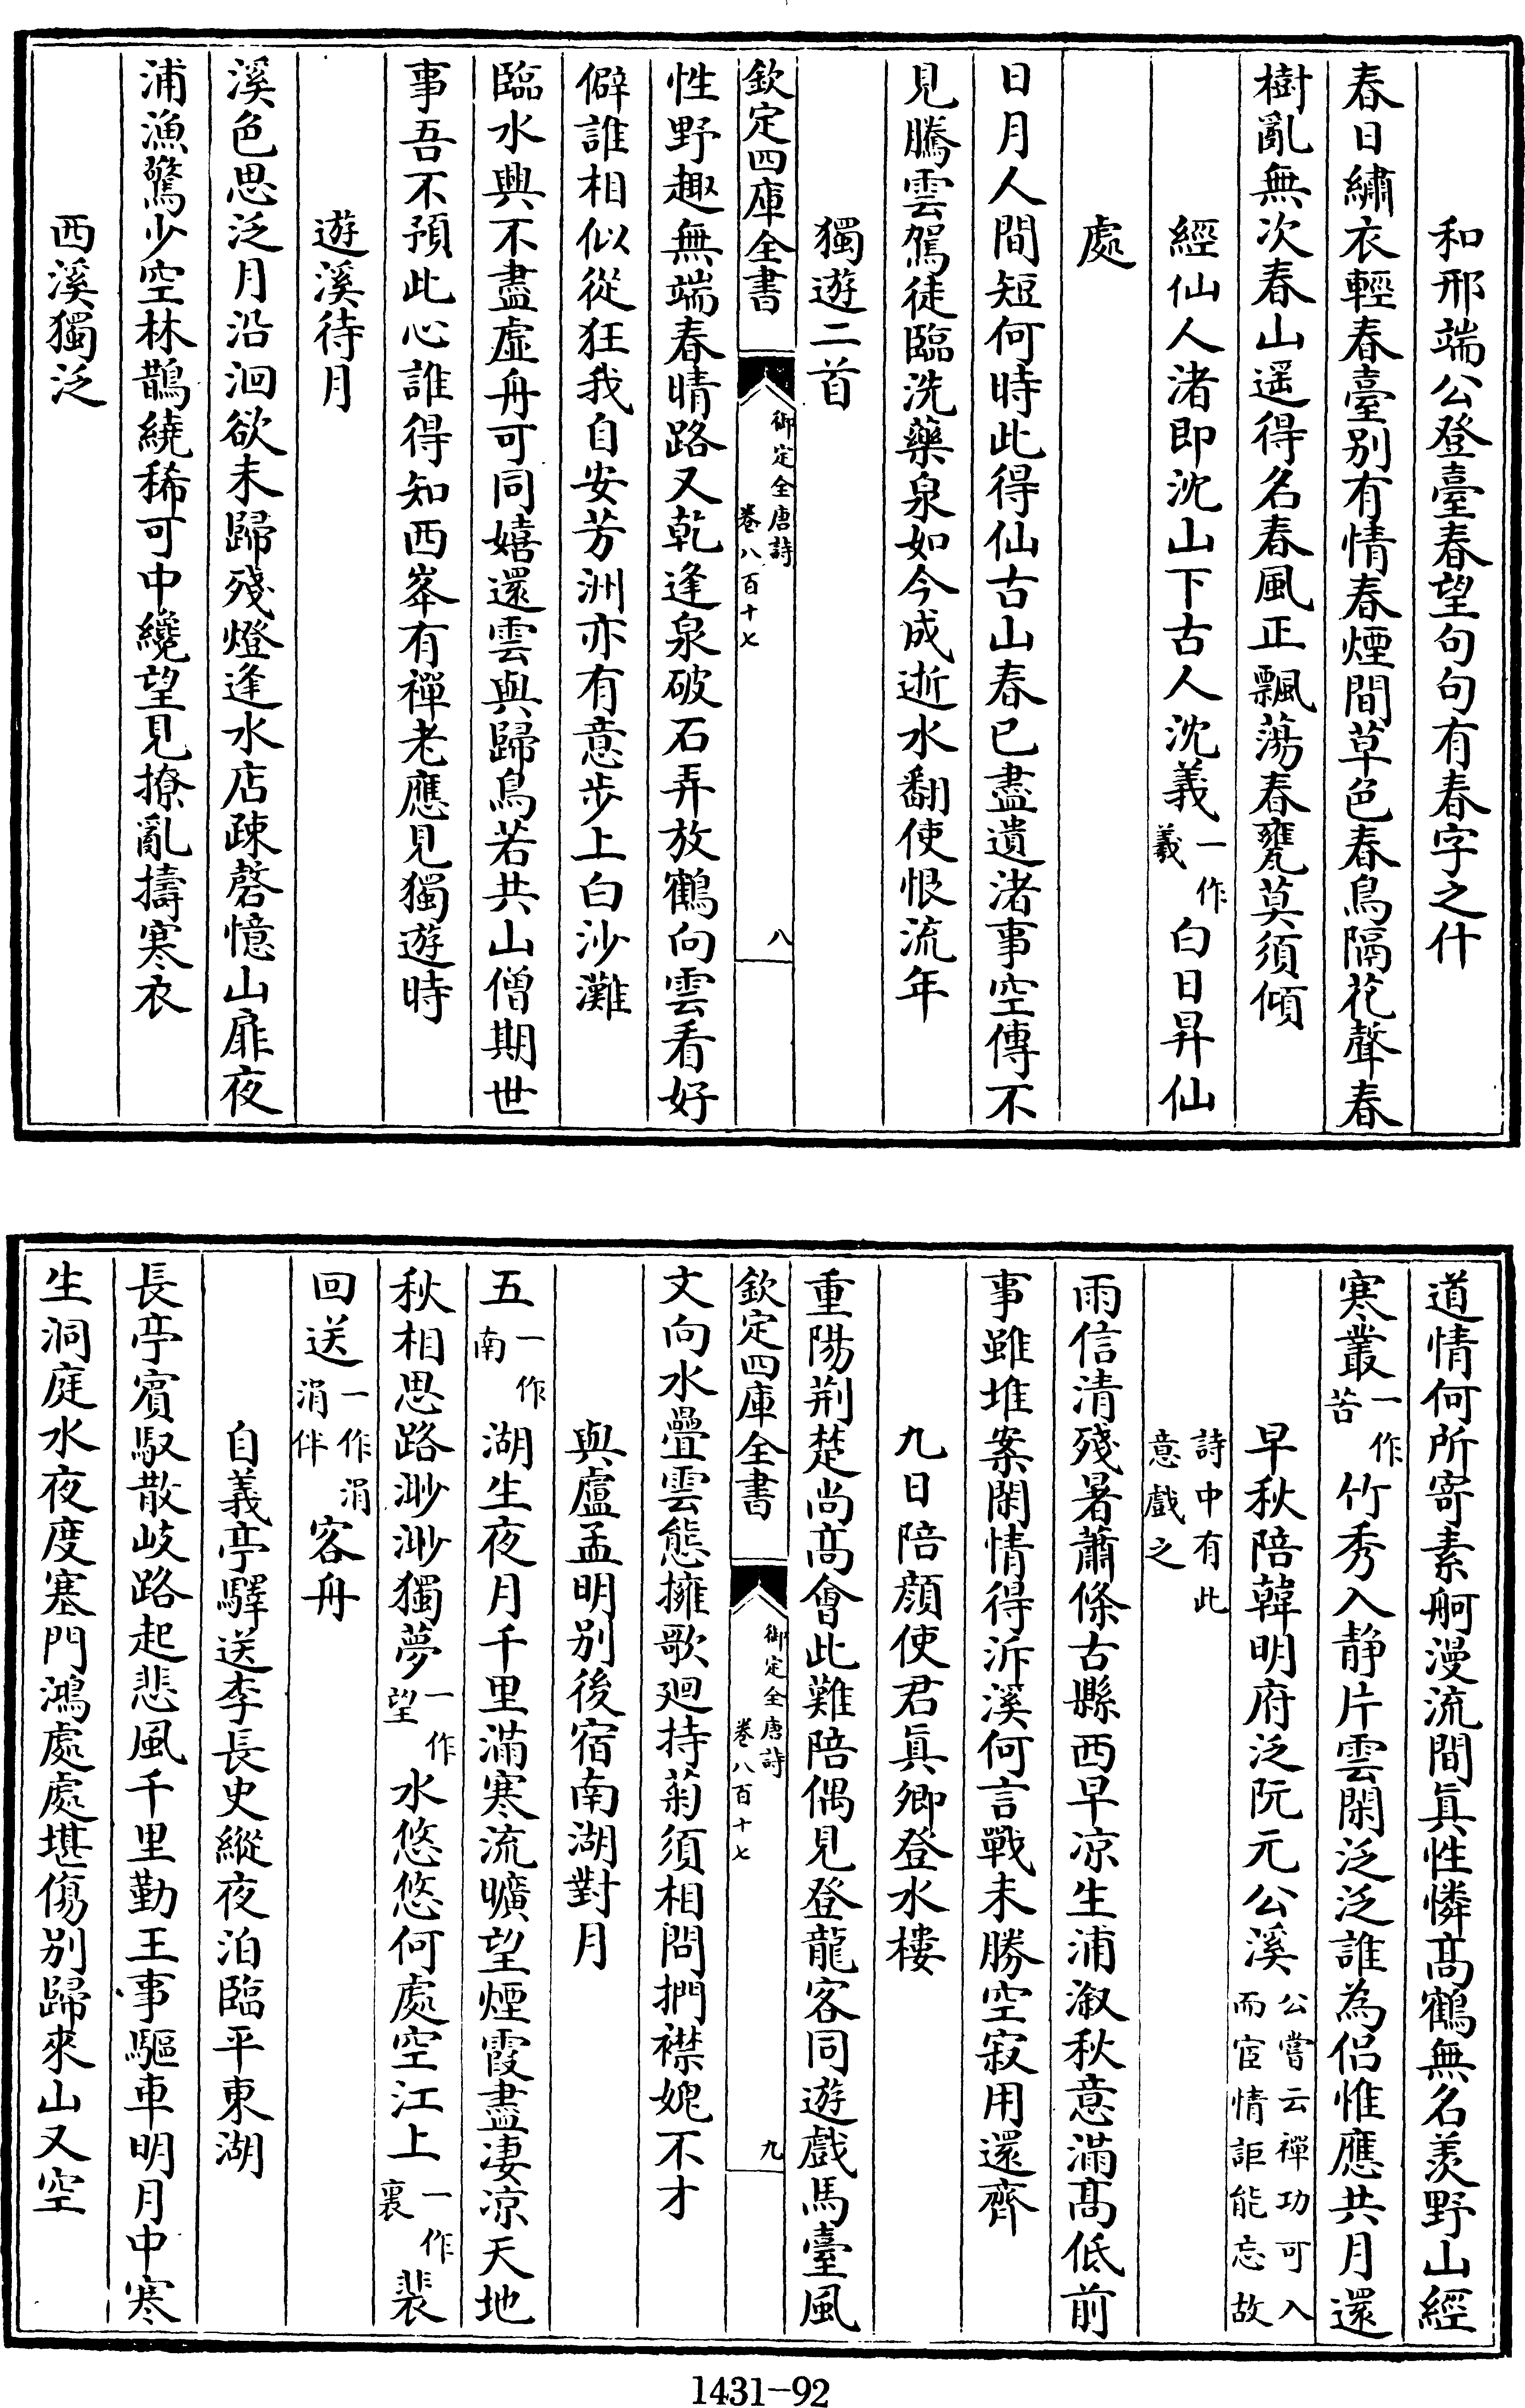 和邢端公登臺春望句句有春字之什
春日繡衣輕春臺别有情春煙間草色春鳥隔花聲春
樹亂無次春山遥得名春風正飄蕩春甕莫須傾
經仙人渚即沈山下古人沈義一作羲白日昇仙
處
日月人間短何時此得仙古山春已盡遺渚事空傳不
見騰雲駕徒臨洗藥泉如今成逝水翻使恨流年
獨遊二首
欽定四庫全書 御定全唐詩 卷八百十七 八
性野趣無端春晴路又乾逢泉破石弄放鶴向雲看好
僻誰相似從狂我自安芳洲亦有意步上白沙灘
臨水興不盡虛舟可同嬉還雲與歸鳥若共山僧期世
事吾不預此心誰得知西峯有禪老應見獨遊時
遊溪待月
溪色思泛月沿洄欲未歸殘燈逢水店疎磬憶山扉夜
浦漁驚少空林鵲繞稀可中纔望見撩亂擣寒衣
西溪獨泛
道情何所寄素舸漫流間真性憐髙鶴無名羡野山經
寒叢一作苦竹秀入静片雲閑泛泛誰為侣惟應共月還
早秋陪韓明府泛阮元公溪公嘗云禪功可入而宦情詎能忘故
詩中有此意戲之
雨信清殘暑蕭條古縣西早凉生浦溆秋意滿髙低前
事雖堆案閑情得泝溪何言戰未勝空寂用還齊
九日陪顔使君真卿登水樓
重陽荆楚尚髙會此難陪偶見登龍客同遊戲馬臺風
欽定四庫全書 御定全唐詩 卷八百十七 九
文向水疊雲態擁歌廻持菊須相問捫襟媿不才
與盧孟明别後宿南湖對月
五一作南湖生夜月千里滿寒流曠望煙霞盡凄凉天地
秋相思路渺渺獨夢一作望水悠悠何處空江上一作裏裴
回送一作涓涓伴客舟
自義亭驛送李長史縱夜泊臨平東湖
長亭賓馭散岐路起悲風千里勤王事驅車明月中寒
生洞庭水夜度塞門鴻處處堪傷别歸來山又空
1431-92